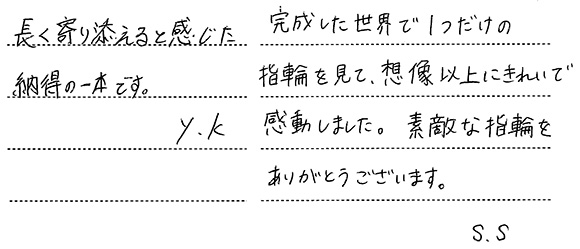 長く寄り添えると感じた
納得の一本です。
Y.K
完成した世界で1つだけの
指輪を見て、想像以上にきれいで
感動しました。素敵な指輪を
ありがとうございます。
S.S